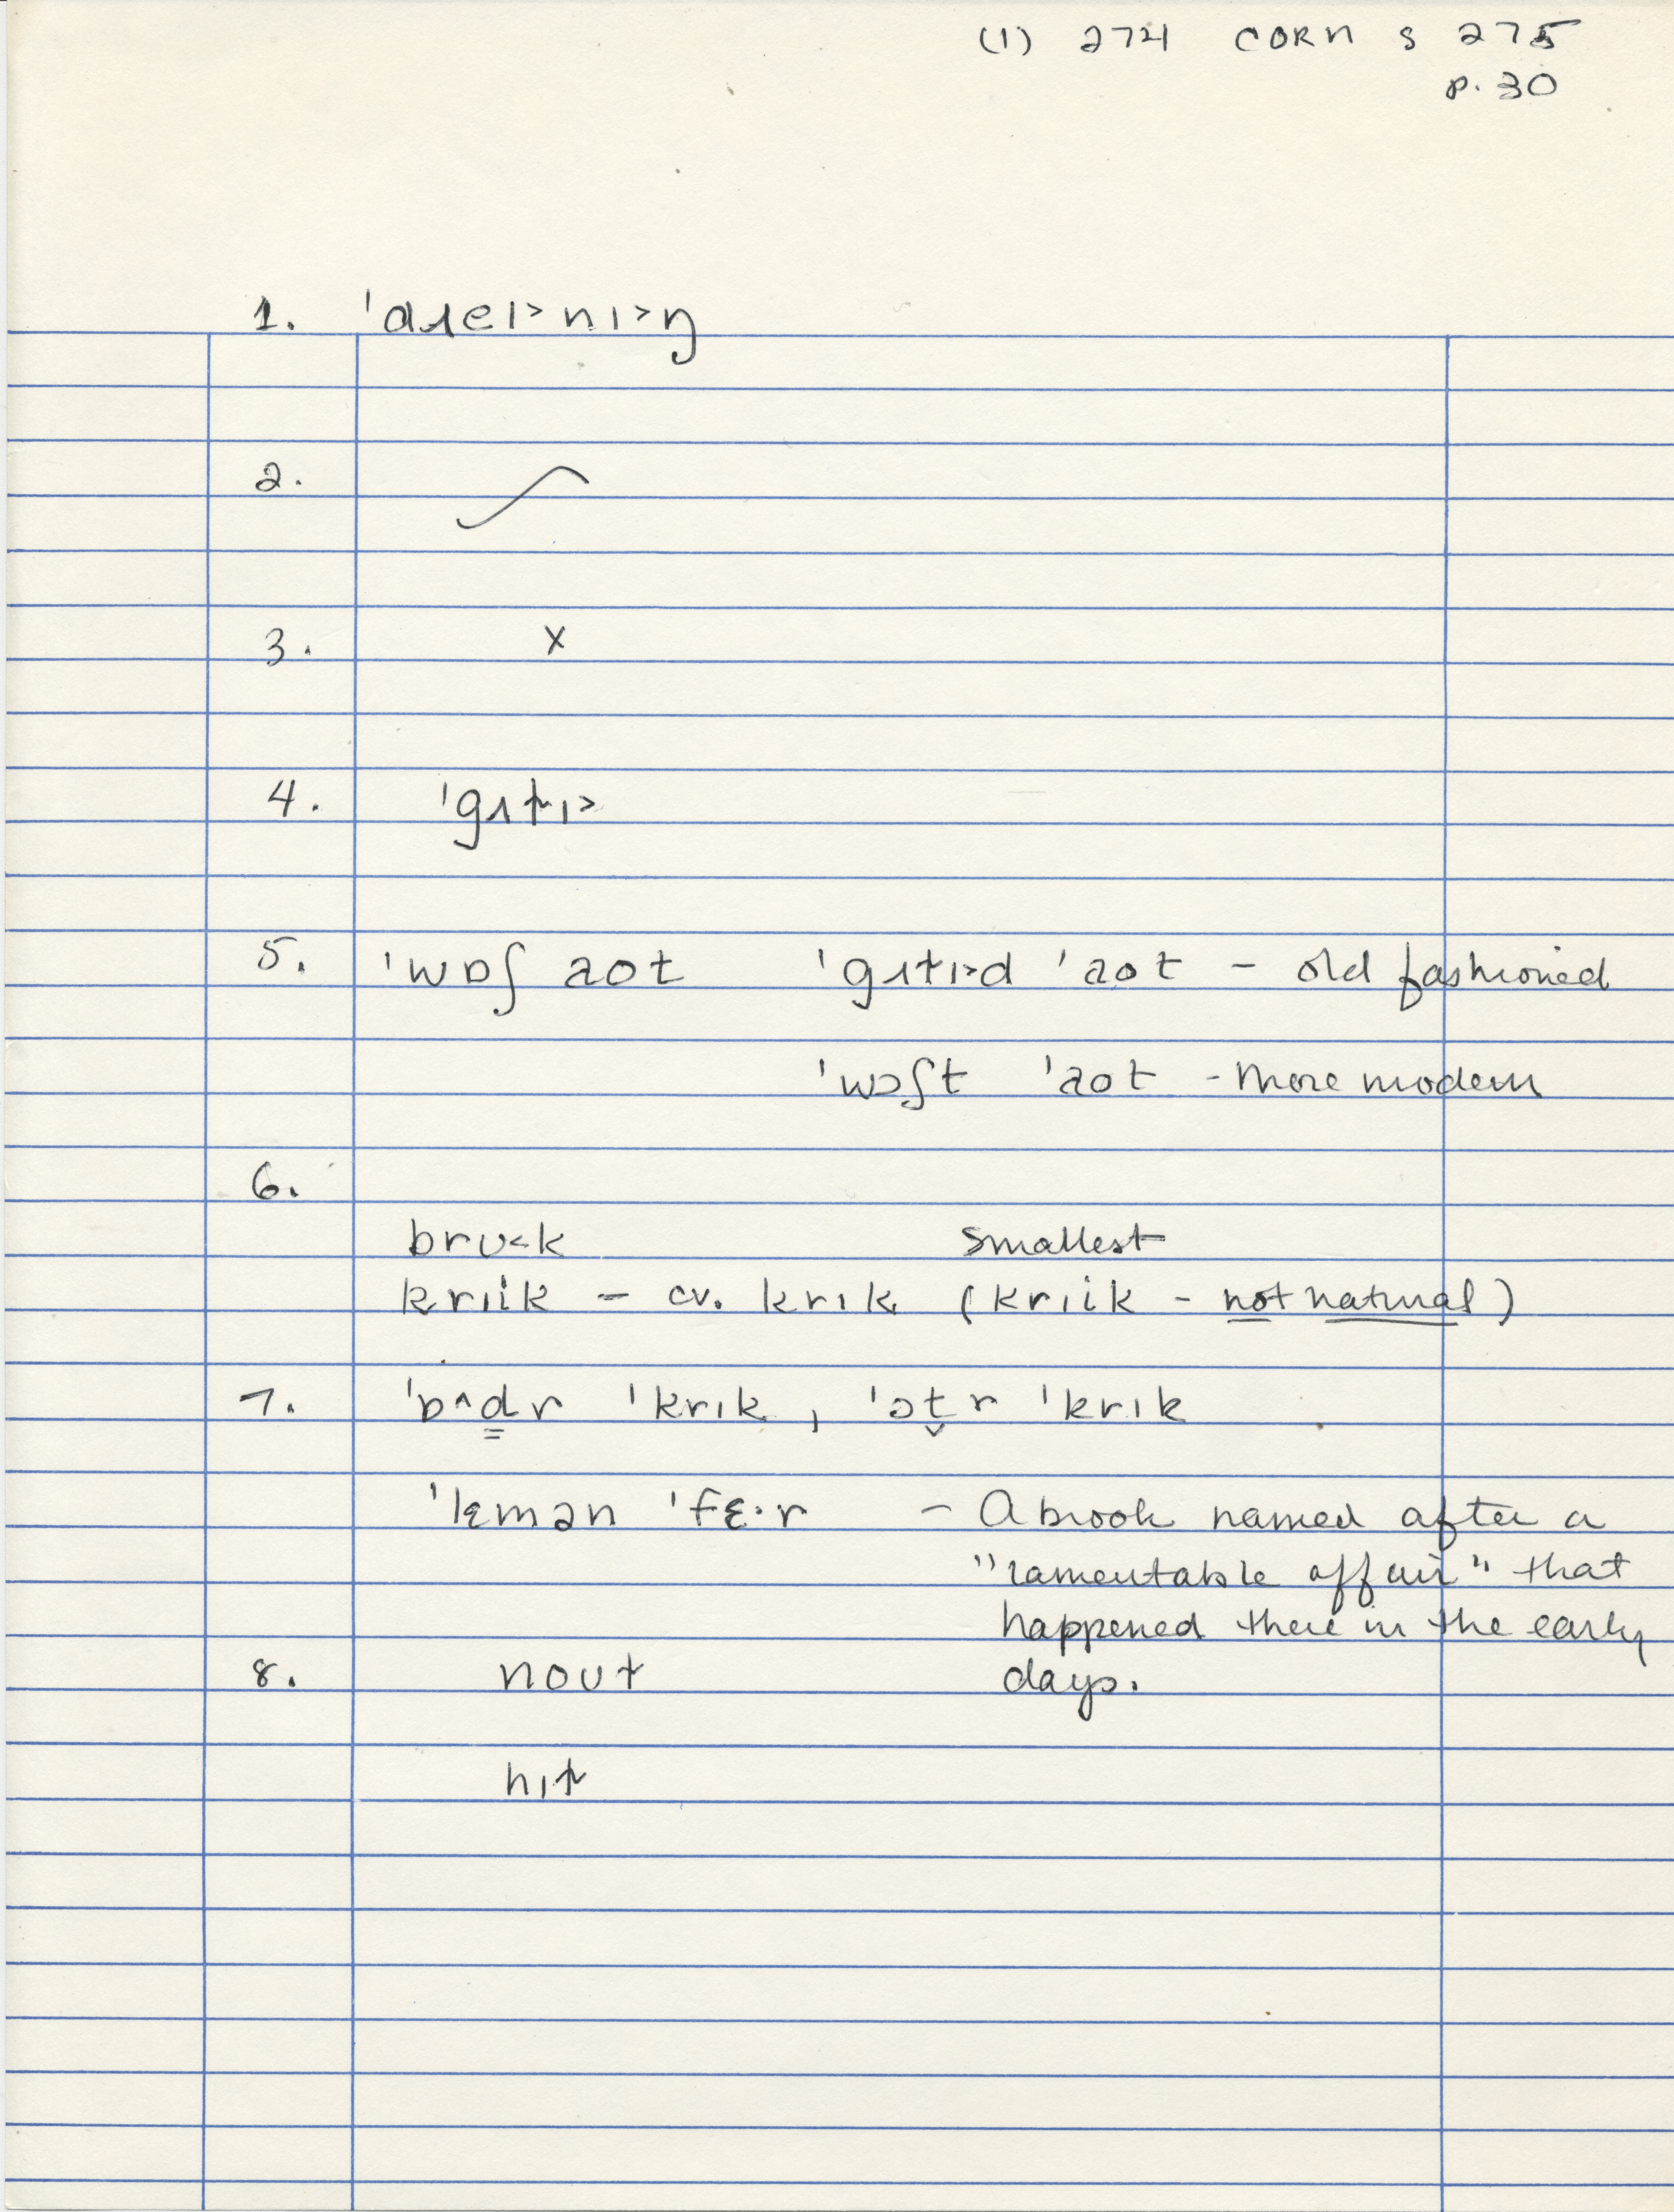 (1) 274 CORN S 275
p. 30
1. 'dɹeɪ>nɪ>ŋ
2.
3. x
4. 'gʌtɪ>
5. 'wɒʃ aot 'gʌtɪ>d 'aot – old fashioned
'wɔʃt 'aot - more modern
6.
brʊ<k smallest
kriik – cv. krɪk (kriik - not natural)
7. 'b^d̳r 'krɪk, 'ɔt̬r 'krɪk
'lɛmən 'fɛ·r – A brook named after a
"lamentable affair" that
happened there in the early
8. noʊt days.
hɪt